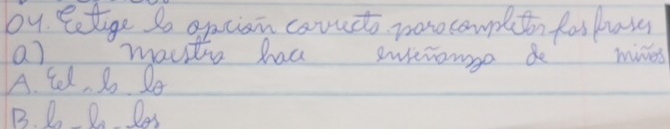 04. Eetige lo opcion correcto paro completor las frases
a) maestro hace enseñanza de miños
A. Eel - lo - lo
B. lo - lo - los